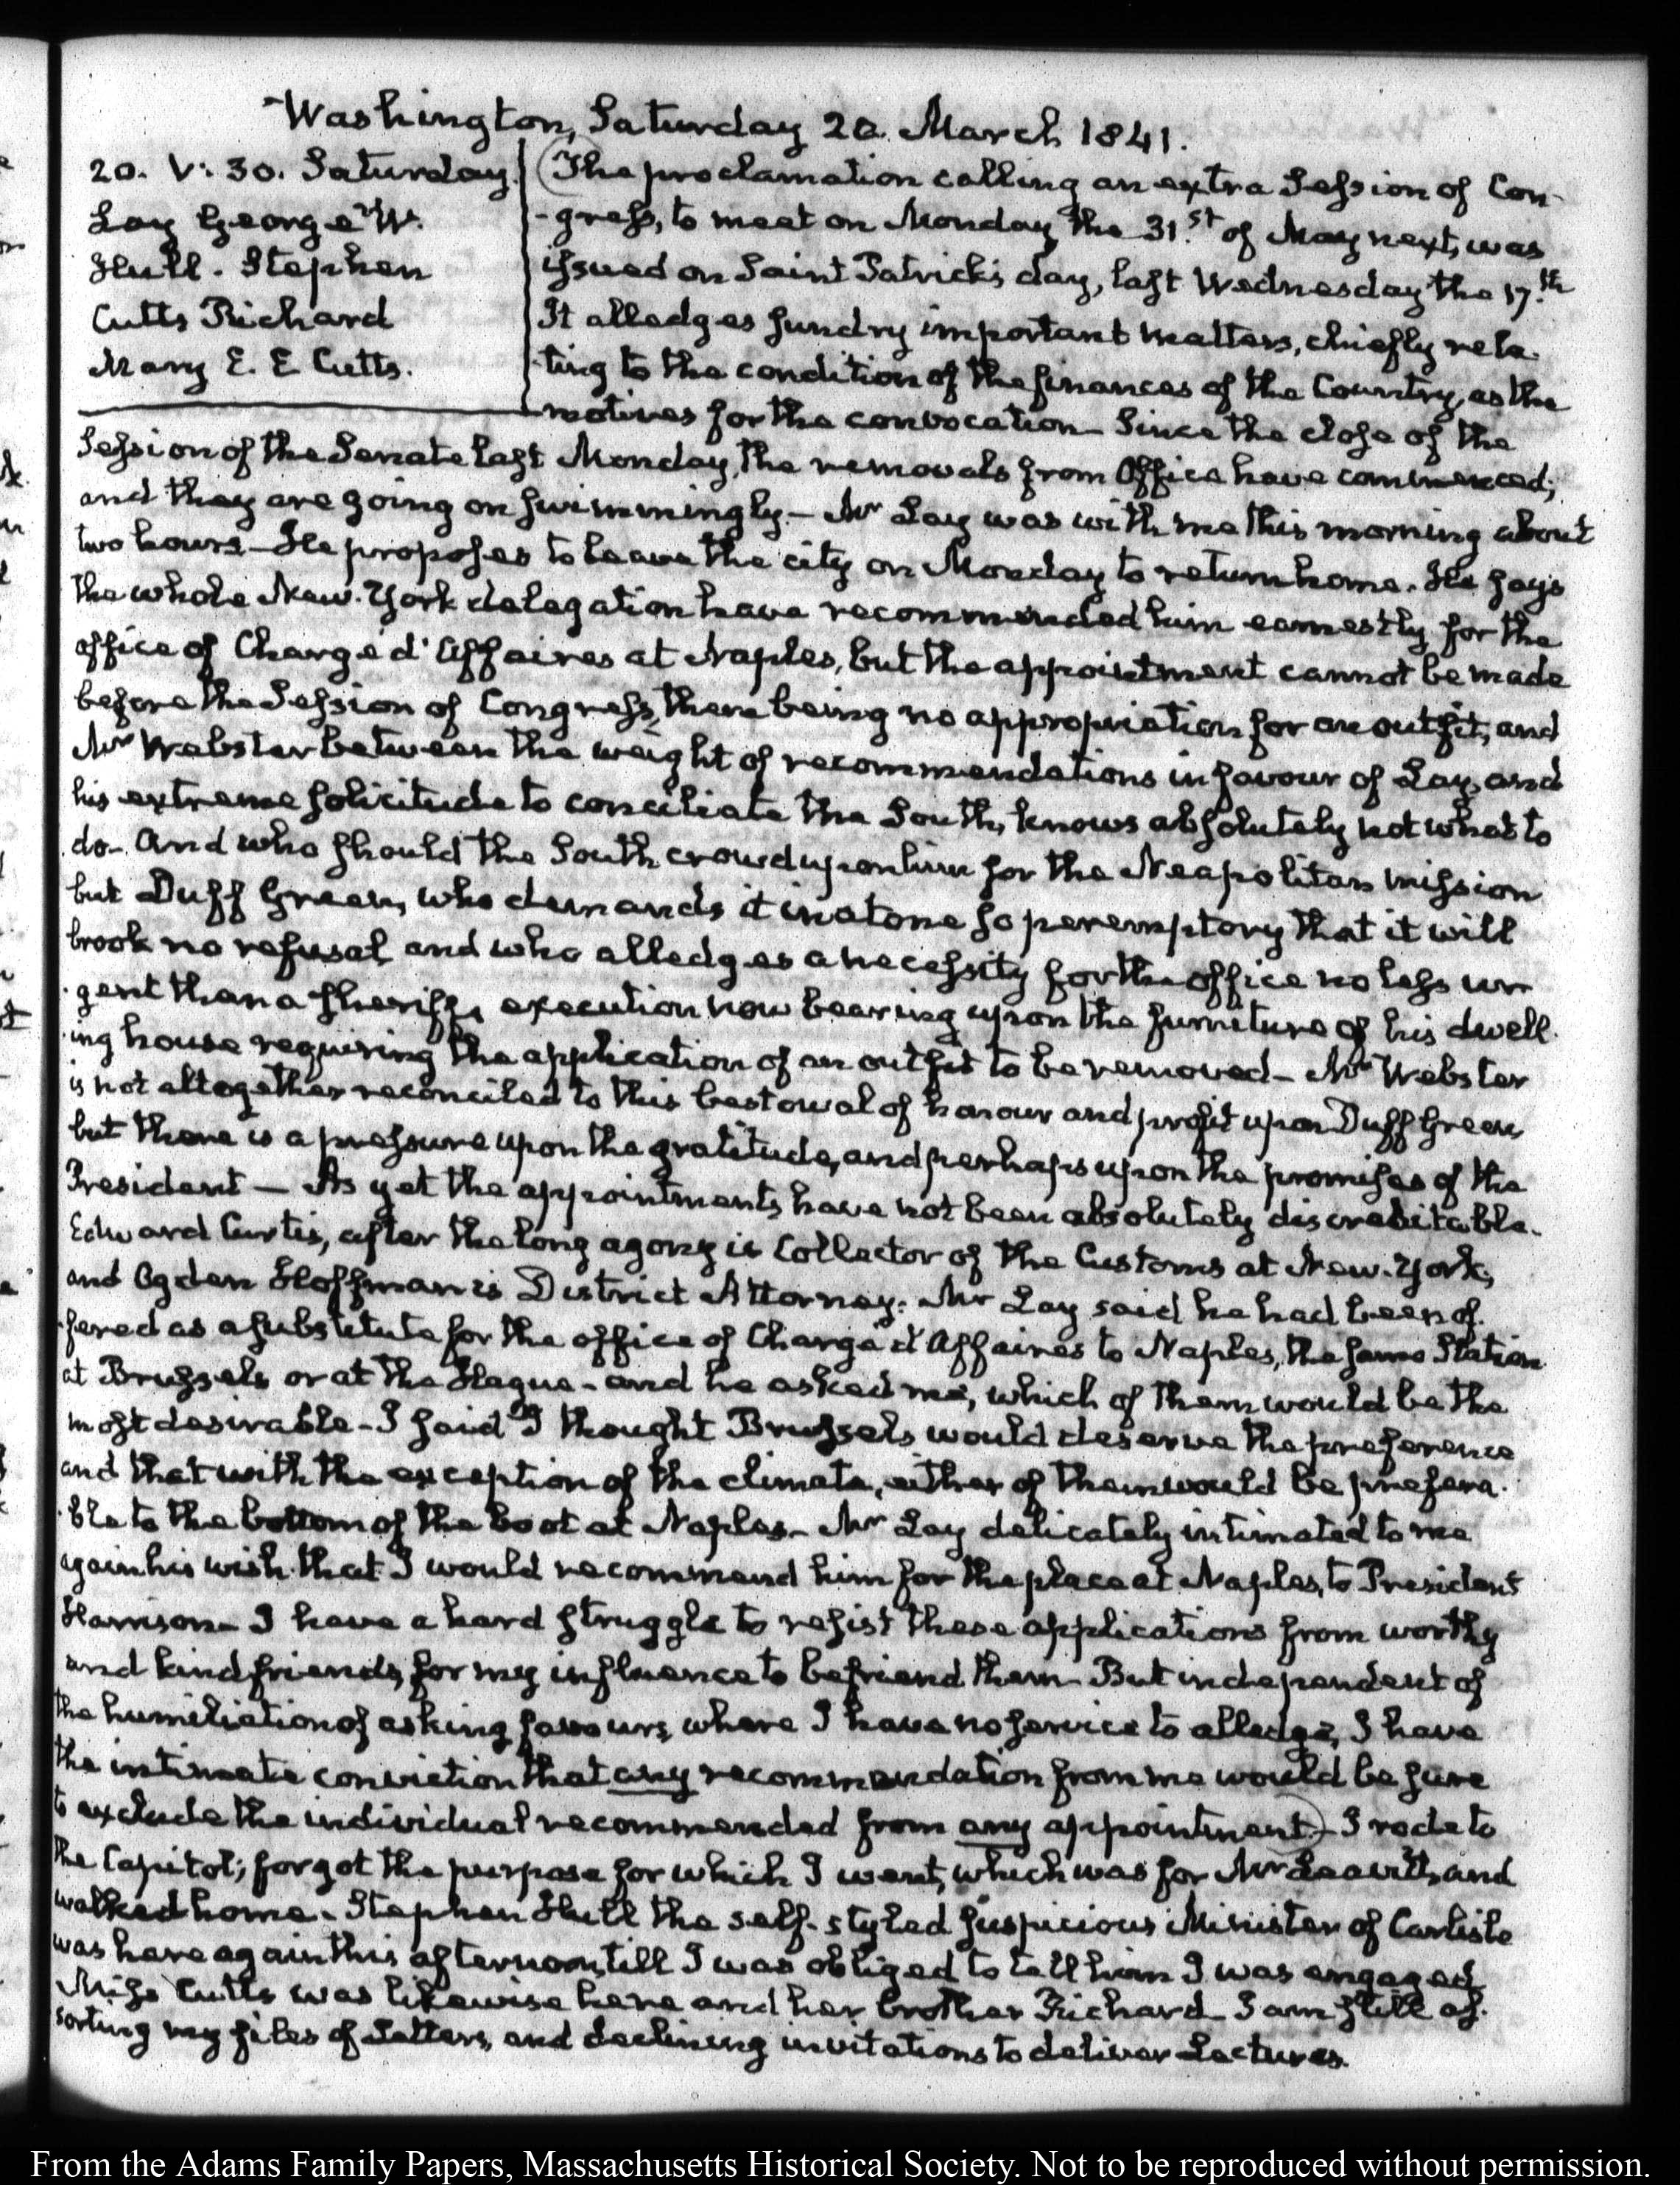 Washington, Saturday 20. March 1841.
20. V: 30. Saturday.
Lay George W.
Hull. Stephen
Cutts Richard
Mary E. E Cutts.
The proclamation calling an extra Session of Con-
-gress, to meet on Monday the 31st. of May next, was
issued on Saint Patrick's day, last Wednesday the 17th.
It alledges sundry important matters, chiefly rela-
-ting to the condition of the finances of the Country, as the
motives for the convocation— Since the close of the
Session of the Senate last Monday, the removals from Office have commenced;
and they are going on swimmingly.— Mr Lay was with me this morning about
two hours— He proposes to leave the city on Monday to return home. He says
the whole New-York delegation have recommended him earnestly for the
office of Chargé d'Affaires at Naples, but the appointment cannot be made
before the Session of Congress, there being no appropriation for an outfit, and
Mr Webster between the weight of recommendations in favour of Lay, and
his extreme solicitude to conciliate the South, knows absolutely not what to
do— And who should the South crowd upon him for the Neapolitan mission
but Duff Green, who demands it in a tone so peremptory that it will
brook no refusal and who alledges a necessity for the office no less ur-
-gent than a sheriff's execution now bearing upon the furniture of his dwell-
-ing house requiring the application of an outfit to be removed— Mr Webster
is not altogether reconciled to this bestowal of honour and profit upon Duff Green,
but there is a pressure upon the gratitude, and perhaps upon the promises of the
President— As yet the appointments have not been absolutely discreditable.
Edward Curtis, after the long agony is Collector of the Customs at New-York;
and Ogden Hoffman is District Attorney. Mr Lay said he had been of-
-fered as a substitute for the office of Chargé d'Affaires to Naples, the same Station
at Brussels or at the Hague— and he asked me, which of them would be the
most desirable— I said I thought Brussels would deserve the preference
and that with the exception of the climate, either of them would be prefera-
-ble to the bottom of the boot at Naples— Mr Lay delicately intimated to me
again his wish that I would recommend him for the place at Naples, to President
Harrison— I have a hard struggle to resist these applications from worthy
and kind friends, for my influence to befriend them— But independent of
the humiliation of asking favours, where I have no service to alledge, I have
the intimate conviction that any recommendation from me would be sure
to exclude the individual recommended from any appointment— I rode to
the Capitol; forgot the purpose for which I went, which was for Mr Leavitt, and
walked home— Stephen Hull the self-styled suspicious Minister of Carlisle
was here again this afternoon, till I was obliged to tell him I was engaged.
Miss Cutts was likewise here and her brother Richard— I am still as-
sorting my files of Letters, and declining invitations to deliver Lectures.
From the Adams Family Papers, Massachusetts Historical Society. Not to be reproduced without permission.